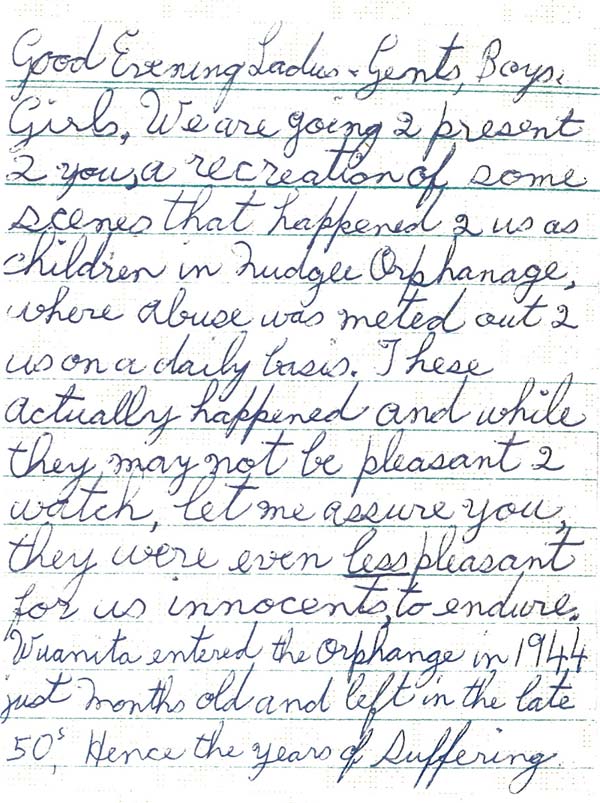 Good Evening Ladies & Gents, Boys &
Girls, We are going 2 present
2 you, a recreation of some
scenes that happened 2 us as
children in Nudgee Orphanage,
where abuse was meted out 2
us on a daily basis. These
actually happened and while
they may not be pleasant 2
watch, let me assure you,
they were even less pleasant
for us innocents, to endure.
Wuanita entered the Orphange in 1944
just months old and left in the late
50s, Hence the years of Suffering.